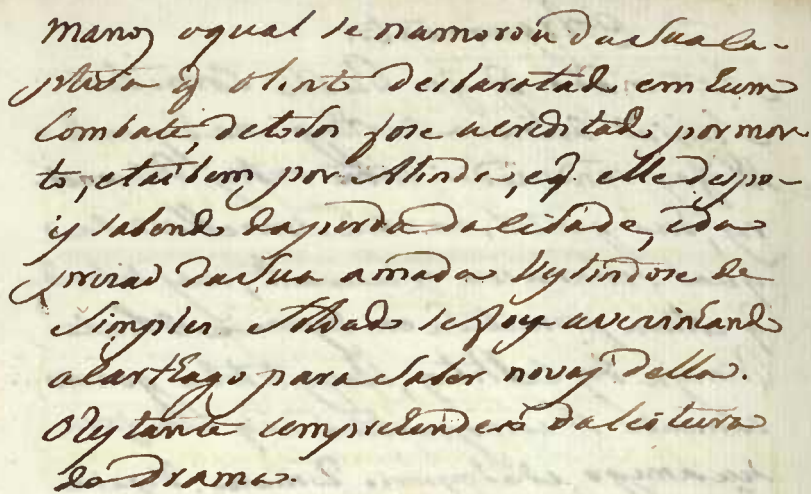 manoz oqual se namorou da sua ca-
ptiva q̃ olint desbaratad em hum
Combate, detodos fose acreditad pormor-
to, etaõbem por Alinde, eq̃ elle depo-
is sabend daperda dacidade, eda
prizaõ dasua amada Vestindose de
Simples Soldad sefoy avezinhand
aCarthago para Saber novas della.
O Restante comprehenderá daleitura
do Drama.